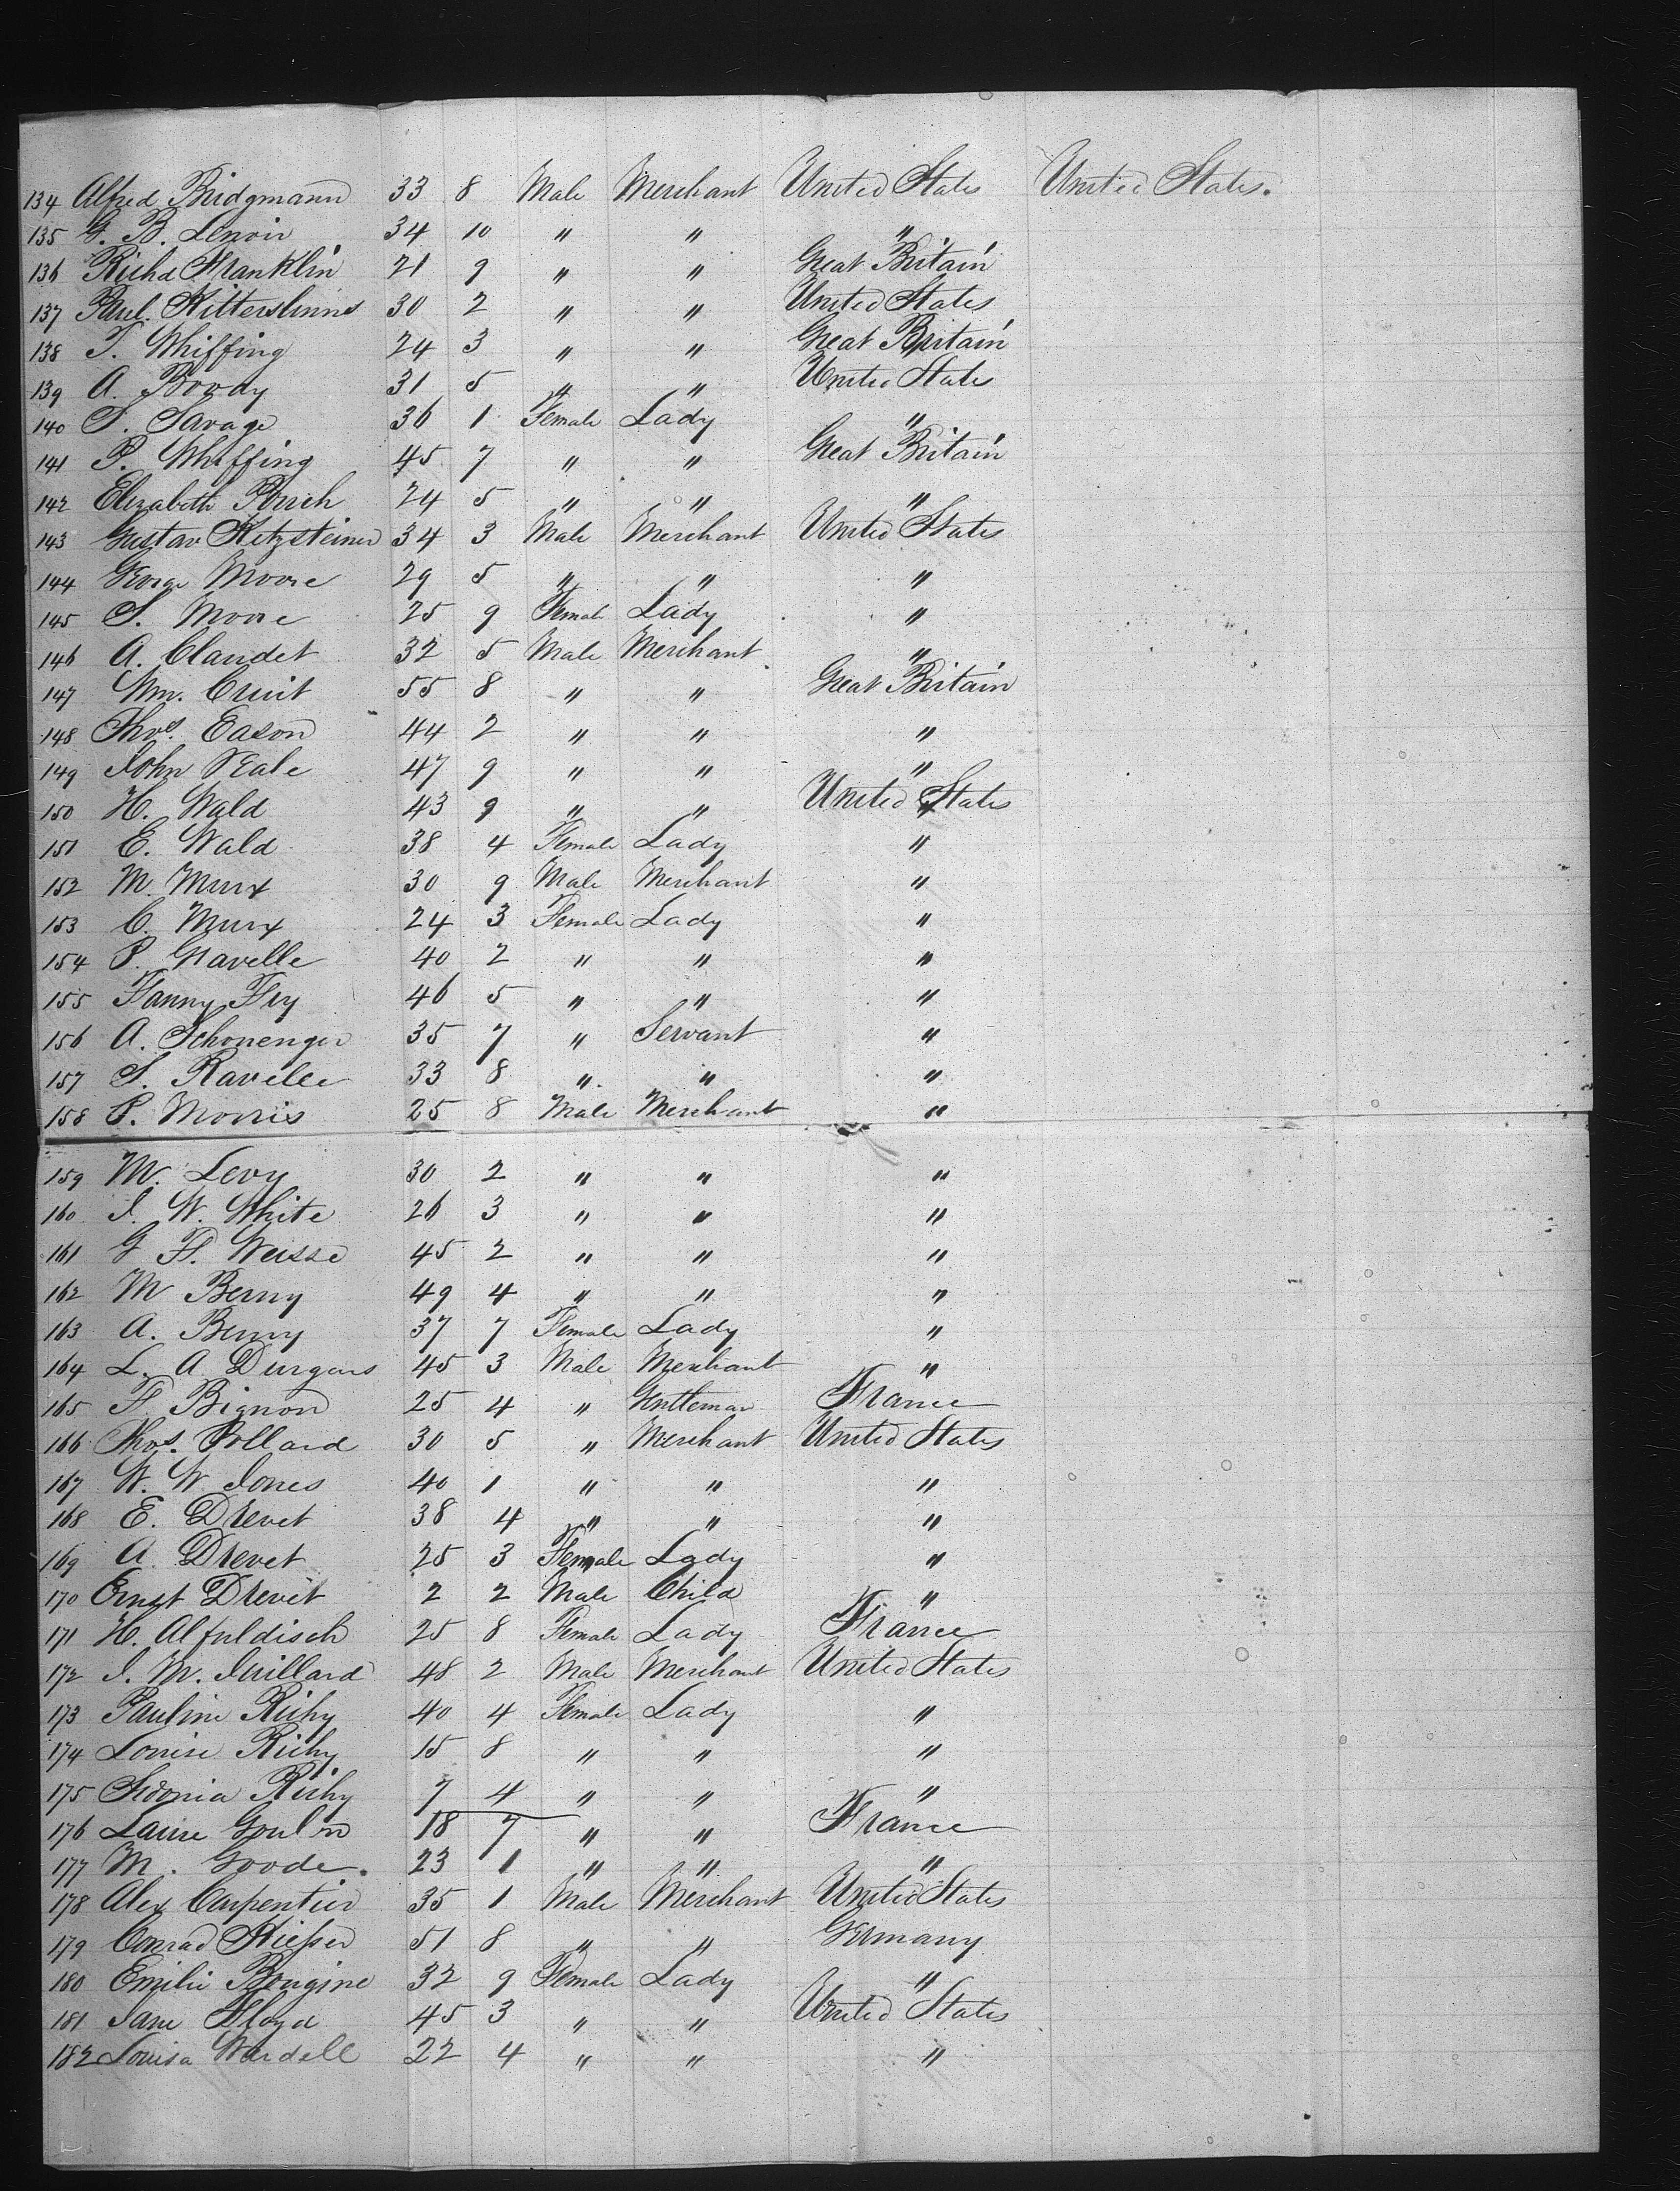 134 Alfred Bridgmann 33 8 Male Merchant United States United States.
135 G. B. Lenoir 34 10 " " "
136 Richd Franklin 21 9 " " Great Britain
137 Paul 30 2 " " United States
138 T. Whiffing 24 3 " " Great Britain
139 A. Boody 31 5 " " United States
140 S. Savage 36 1 Female Lady "
141 P. Whiffing 45 7 " " Great Britain
142 Elizabeth 24 5 " " "
143 Gustav Ketzsteiner 34 3 Male Merchant United States
144 George Moore 29 5 " " "
145 S. Moore 25 9 Female Lady "
146 A. Claudet 32 5 Male Merchant "
147 Wm. Cruit 55 8 " " Great Britain
148 Thos. Eason 44 2 " " "
149 John Neale 47 9 " " "
150 H. Wald 43 9 " " United States
151 E. Wald 38 4 Female Lady "
152 M. Murx 30 9 Male Merchant "
153 C. Murx 24 3 Female Lady "
154 P. Gravelle 40 2 " " "
155 Fanny Fry 46 5 " " "
156 A. Schonenger 35 7 " Servant "
157 S. Ravelle 33 8 " " "
158 P. Morris 25 8 Male Merchant "
159 M. Levy 30 2 " " "
160 J. W. White 26 3 " " "
161 G F. Weisse 45 2 " " "
162 M Berny 49 4 " " "
163 A. Berny 37 7 Female Lady "
164 L. A. Durgans 45 3 Male Merchant "
165 F. Bignon 25 4 " Gentleman France
166 Thos. Pollard 30 5 " Merchant United States
167 W. W Jones 40 1 " " "
168 E. Drevet 38 4 " " "
169 A. Drevet 25 3 Female Lady "
170 Ernst Drevet 2 2 Male Child "
171 H. Alfuldisch 25 8 Female Lady France
172 J. M. Juillard 48 2 Male Merchant United States
173 Pauline Richy 40 4 Female Lady "
174 Louise Richy 15 8 " " "
175 Sidonia Richy 7 4 " " "
176 Laure 18 7 " " France
177 M. Goode. 23 1 " " "
178 Alex Carpentier 35 1 Male Merchant United States
179 Conrad 51 8 " " Germany
180 Emilie Bougine 32 9 Female Lady "
181 Jane Floyd 45 3 " " United States
182 Louisa Wardell 22 4 " " "